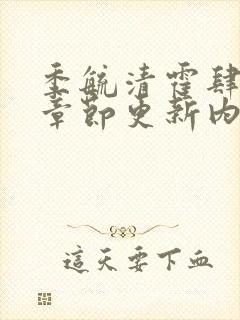 季毓清霍肆
章節更新內
這天要下血